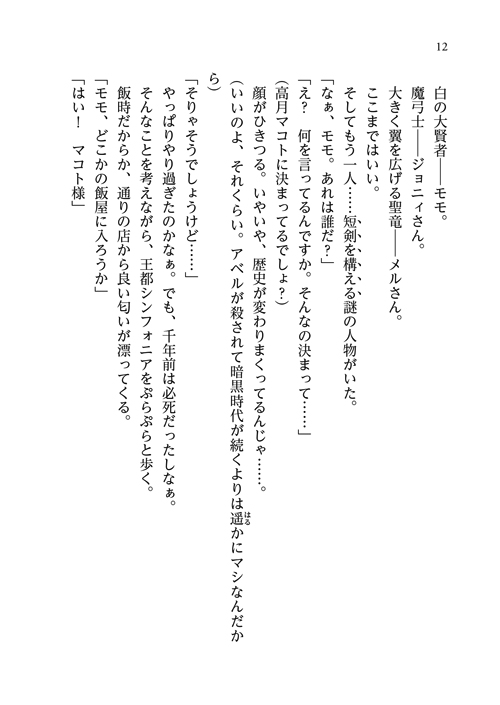 12
白の大賢者――モモ。
魔弓士――ジョニィさん。
大きく翼を広げる聖竜――メルさん。
ここまではいい。
そしてもう一人……短剣を構える謎の人物がいた。
「なぁ、モモ。あれは誰だ?」
「え?　何を言ってるんですか。そんなの決まって……」
(高月マコトに決まってるでしょ?)
顔がひきつる。いやいや、歴史が変わりまくってるんじゃ……。
(いいのよ、それくらい。アベルが殺されて暗黒時代が続くよりは遥はるかにマシなんだか
ら)
「そりゃそうでしょうけど……」
やっぱりやり過ぎたのかなぁ。でも、千年前は必死だったしなぁ。
そんなことを考えながら、王都シンフォニアをぷらぷらと歩く。
飯時だからか、通りの店から良い匂いが漂ってくる。
「モモ、どこかの飯屋に入ろうか」
「はい!　マコト様」